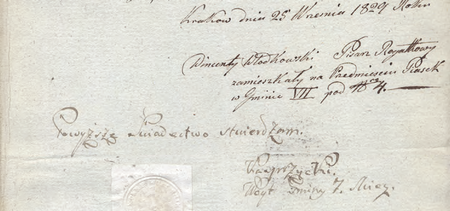 Krakow dnia 25 Wrzenia 1829 Roku
Wincenty Wlodkowski Pisarz Rogatkowy
zamieszkały na Przedmieściu Piasek
w Gminie VII pod N 4.
Powyższe świadectwo stwierdzam.
Woyt Gminy 7. Miey.